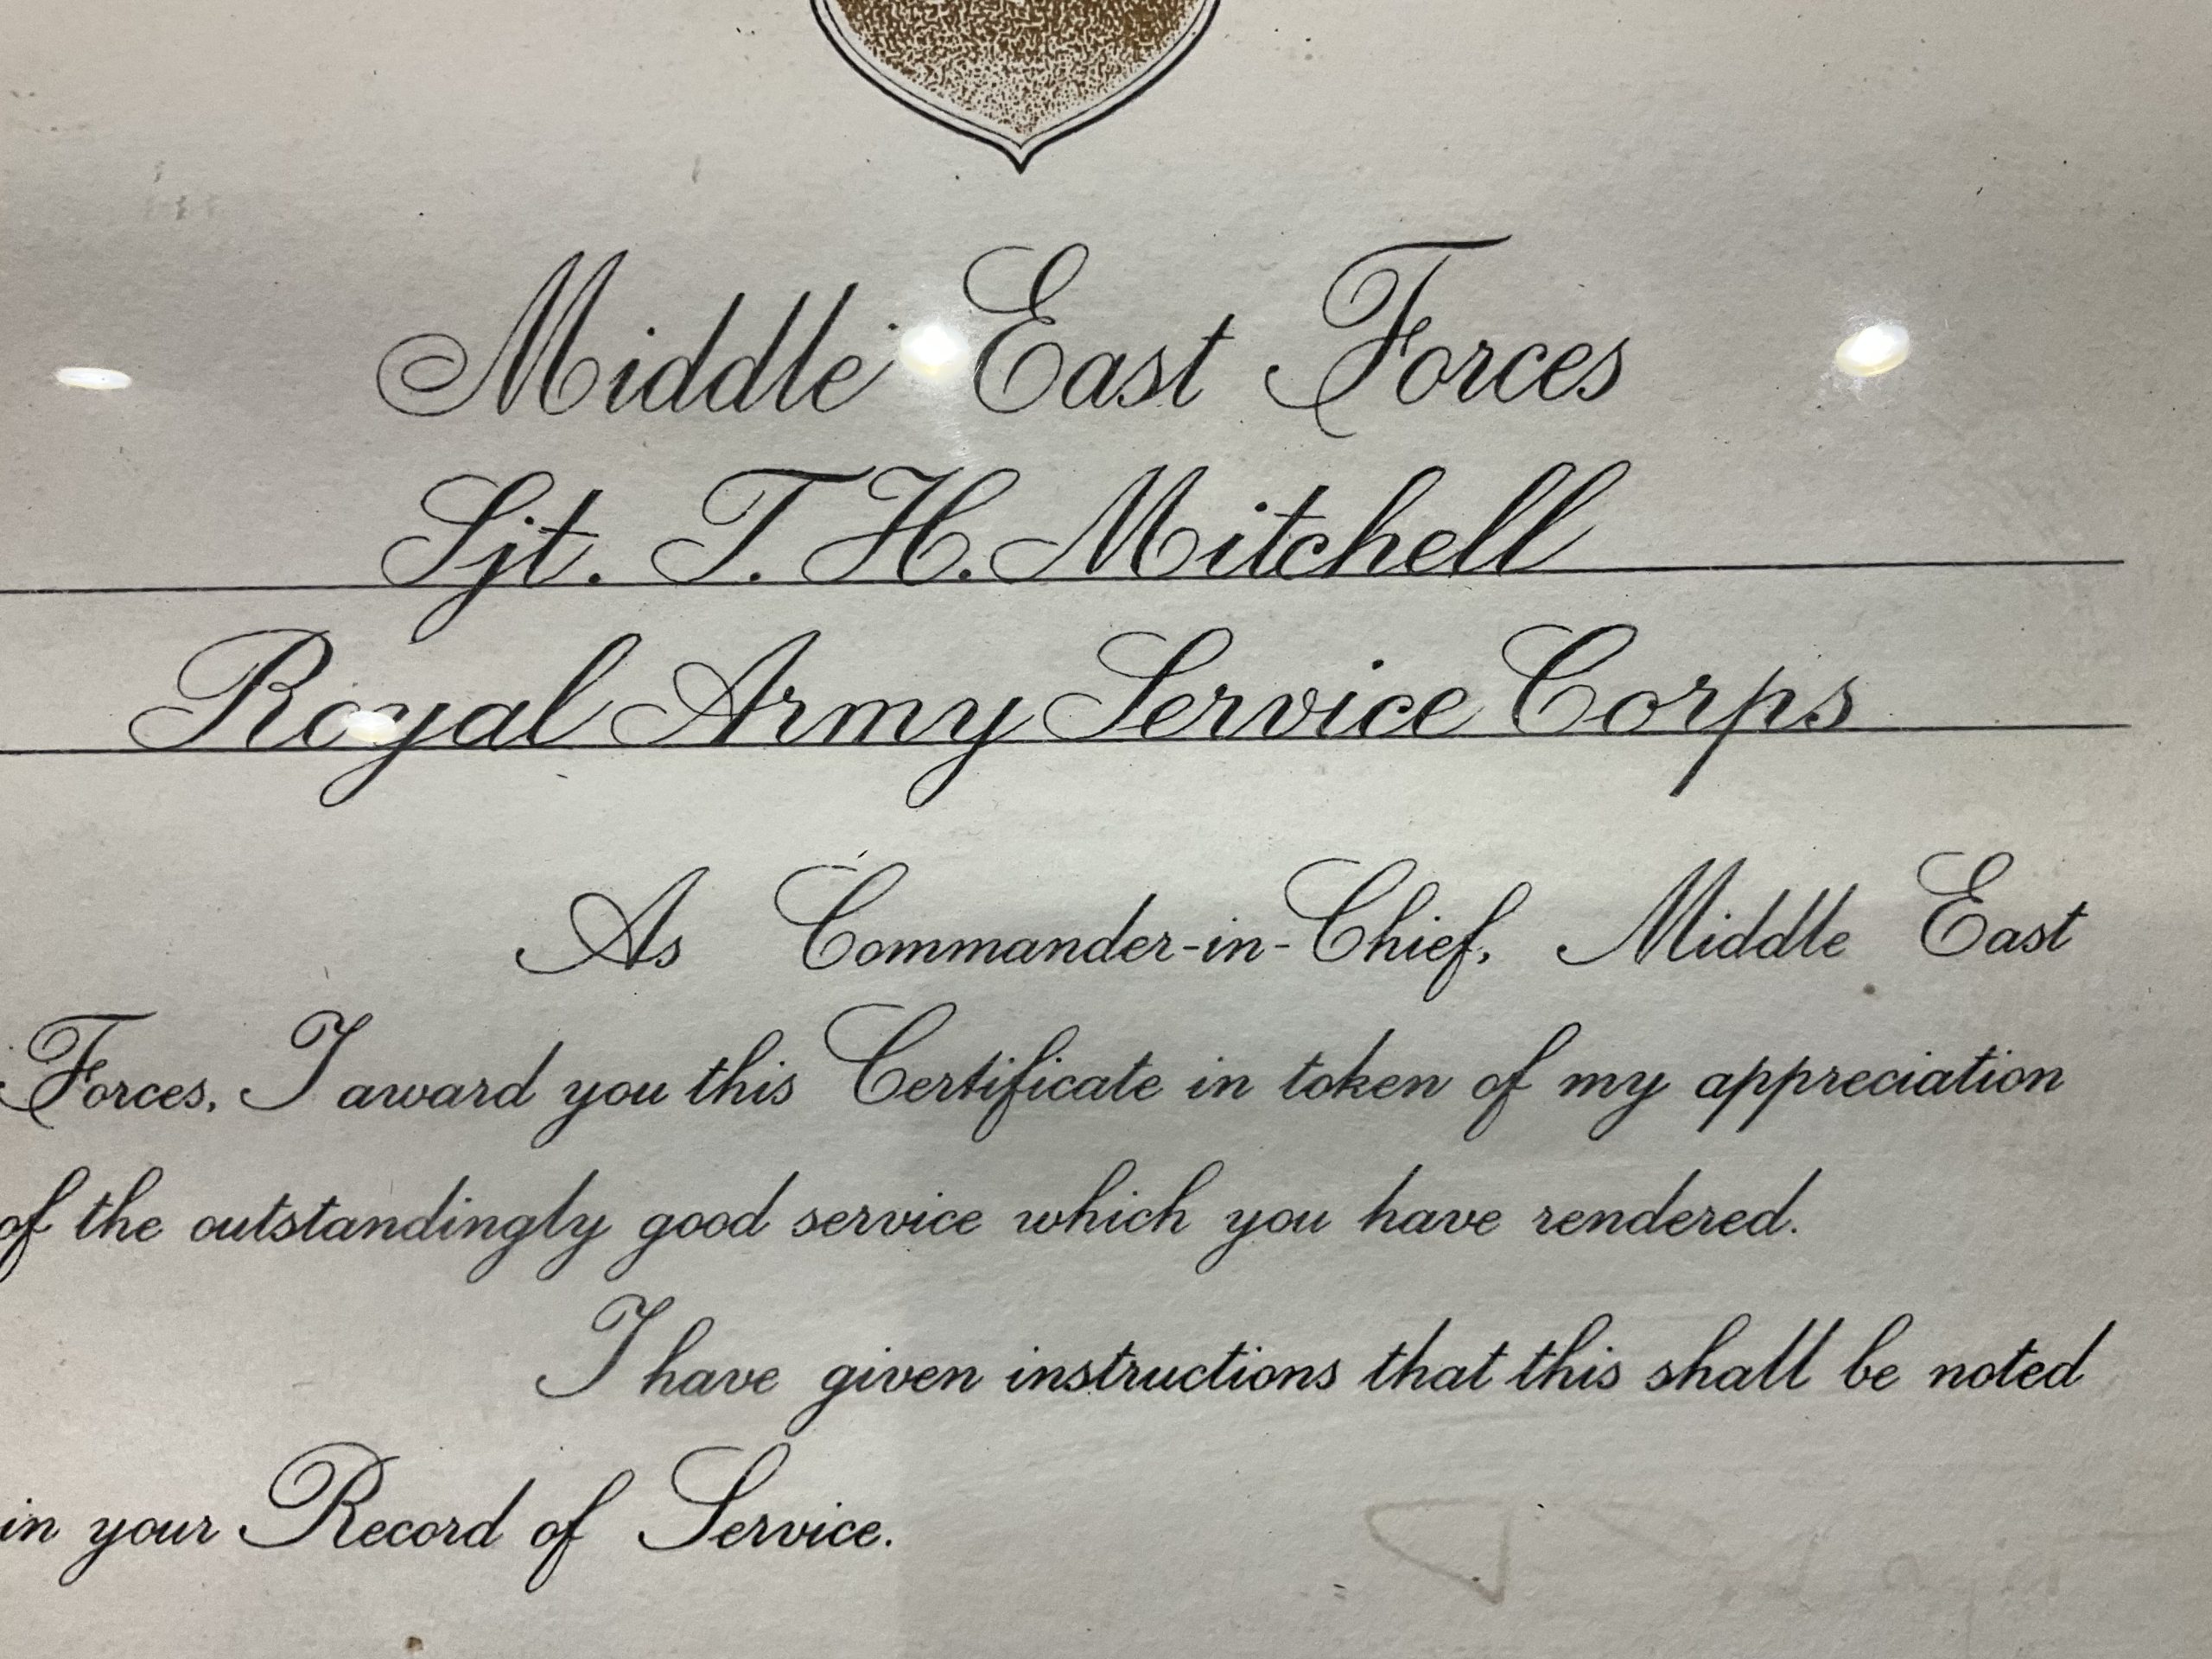 Middle East Forces
Sjt. T. H. Mitchell
Royal Army Service Corps
As Commander-in-Chief, Middle East
Forces, I award you this Certificate in token of my appreciation
of the outstandingly good service which you have rendered.
I have given instructions that this shall be noted
in your Record of Service.